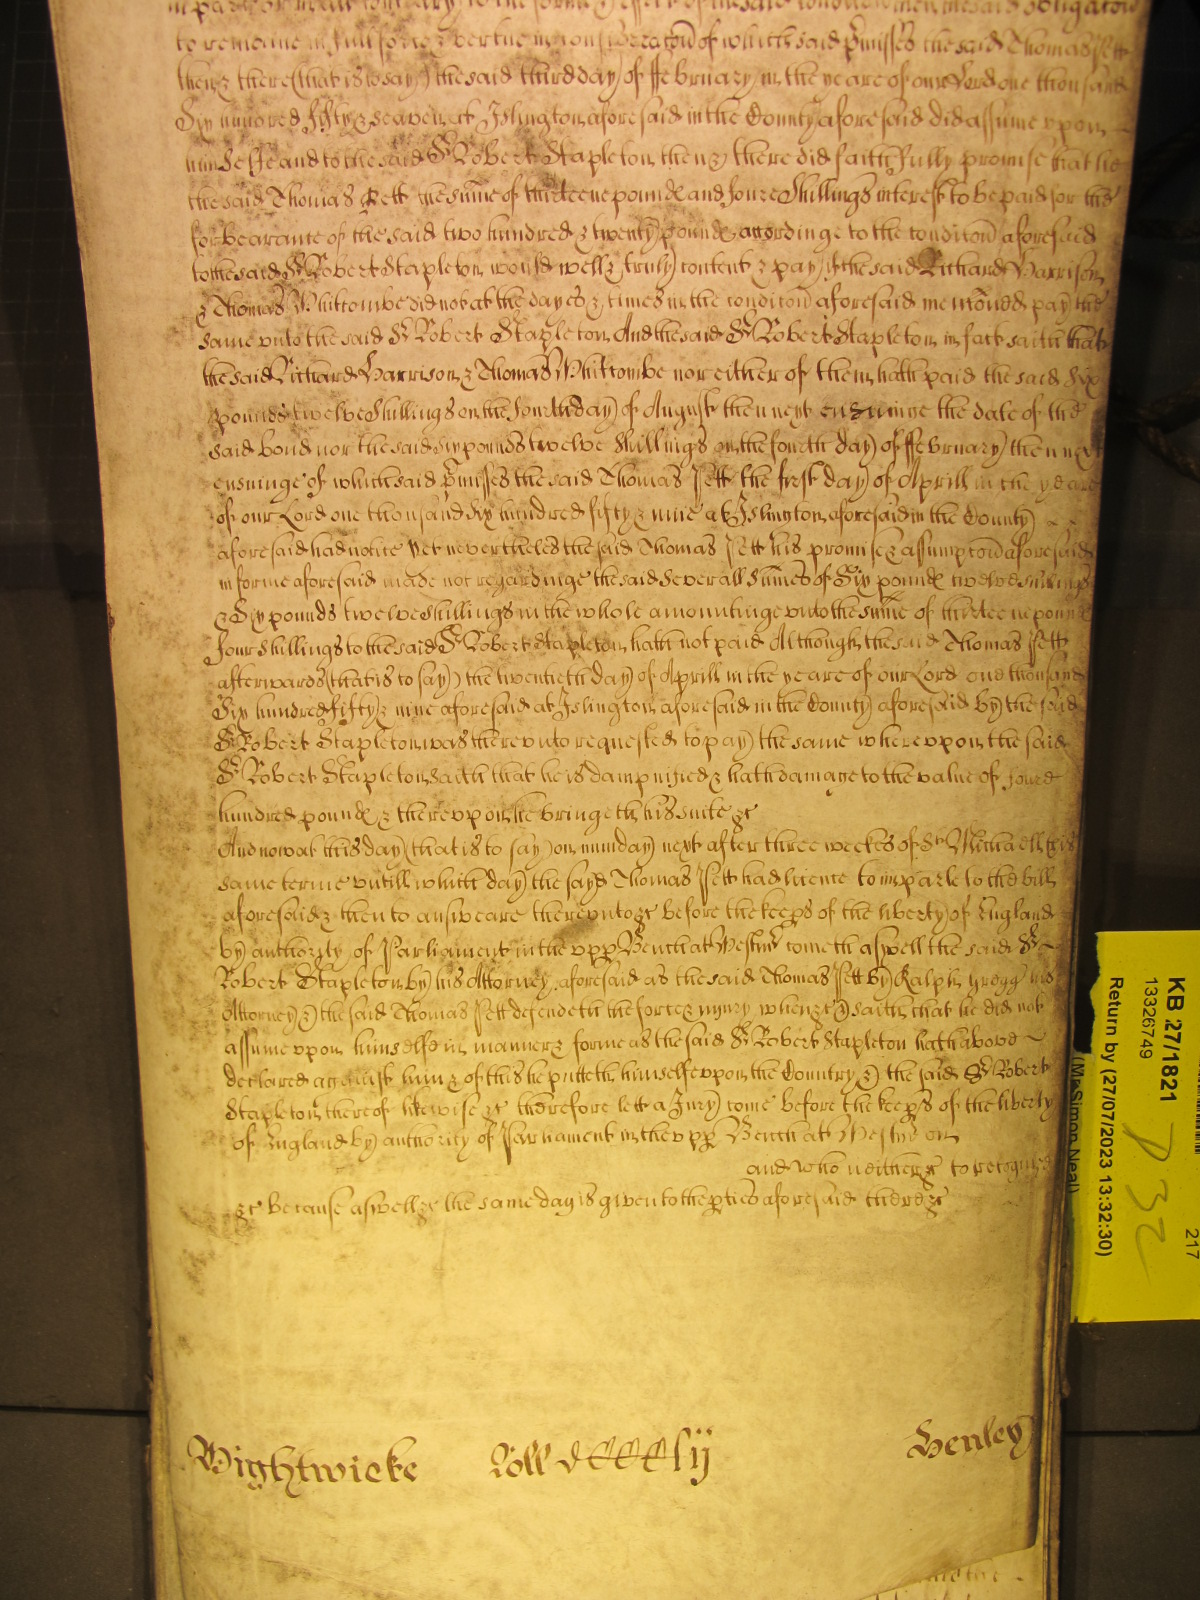 to remaine in full force & vertue in consideracon of which said p'misses the said Thomas Pett
then & there (that is to say) the said third day of ffebruary in the yeare of our Lord one thousand
Six hundred fifty & seaven at Islington aforesaid in the County aforesaid did assume vpon
himselfe and to the said Sr Robert Stapleton then & there did faithfully promise that he
the said Thomas Pett the sume of thirteene pounds and foure shillings interest to be paid for the
forbearance of the said two hundred & twenty pounds accordinge to the condicon aforesaid
to the said Sr Robert Stapleton would well & truly content & pay if the said Richard Harrison
& Thomas Whittombe did not at the dayes & times in the condicon aforesaid menconed pay the
same vnto the said Sr Robert Stapleton And the said Sr Robert Stapleton in fact saith that
the said Richard Harrison & Thomas Whittombe nor either of them hath paid the said six
pounds twelve shillings on the fourth day of August then next ensuinge the date of the
said bond nor the said six pounds twelve shillings on the fourth day of ffebruary then next
ensuinge of which said p'misses the said Thomas Pett the first day of Aprill in the yeare
of our Lord one thousand six hundred fifty & nine at Islington aforesaid in the County
aforesaid had notice Yet neverthelés the said Thomas Pett his promise & assumpcon aforesaid
in forme aforesaid made not regardinge the said severall sumes of Six pounds twelve shillings
& Six pounds twelve shillings in the whole amountinge vnto the sume of thirteene pounds
foure shillings to the said Sr Robert Stapleton hath not paid Although the said Thomas Pett
afterwards (that is to say) the twentieth day of Aprill in the yeare of our Lord one thousand
Six hundred fifty & nine aforesaid at Islington aforesaid in the County aforesaid by the said
Sr Robert Stapleton was therevnto requested to pay the same wherevpon the said
Sr Robert Stapleton saith that he is dampnified & hath damage to the value of foure
hundred pounds & therevpon he bringeth his suite &c
And now at this day (that is to say) on munday next after three weekes of St Michaell this
same terme vntill which day the sayd Thomas Pett had licence to imparle to the bill
aforesaid & then to answeare therevnto &c before the keep's of the liberty of England
by authority of Parliament in the vpp Bench at Westm' cometh aswell the said Sr
Robert Stapleton by his Attorney aforesaid as the said Thomas Pett by Ralph Gregg his
Attorney & the said Thomas Pett defendeth the force & iniury when &c & saith that he did not
assume vpon himselfe in manner & forme as the said Sr Robert Stapleton hath above
declared against him & of this he putteth himselfe vpon the Country & the said Sr Robert
Stapleton thereof likewise &c therefore lett a Jury come before the keep's of the liberty
of England by authority of Parliament in the vpp Bench at Westm' on
and who neither &c to recognize
&c because aswell &c the same day is given to the pties aforesaid there &c
Wightwicke Roll dcccclij Henley
KB 27/1821
13326749
Return by (27/07/2023 13:32:30)
(Mr Simon Neal)
217
D 32